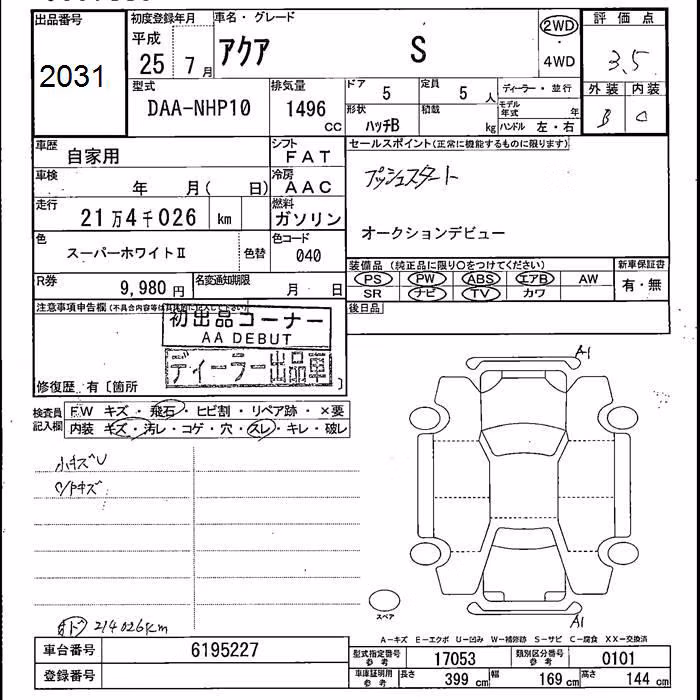 出品番号
2031
初度登録年月
平成
25 7月
車名・グレード
アクア S
2WD
・
4WD
評価点
3.5
外装 内装
B C
型式
DAA-NHP10
排気量
1496
CC
ドア
5
定員
5 人
ディーラー・並行
形状
ハッチB
積載
kg
モデル年式 年
ハンドル 左・右
車歴
自家用
シフト
FAT
セールスポイント(正常に機能するものに限ります)
プッシュスタート
オークションデビュー
車検
年 月( 日)
冷房
AAC
走行
21万4千026 km
燃料
ガソリン
色
スーパーホワイトⅡ
色替
色コード
040
装備品 (純正品に限り○をつけてください)
PS PW ABS エアB AW
SR ナビ TV カワ
新車保証書
有・無
R券
9,980円
名変通知期限
月 日
後日品
注意事項申告欄(不具合内容等は具体的に記入して下さい)
初出品コーナー
AA DEBUT
ディーラー出品車
修復歴 有〔箇所 〕
検査員記入欄
FW キズ・飛石・ヒビ割・リペア跡・×要
内装 キズ・汚レ・コゲ・穴・スレ・キレ・破レ
小キズU
C/Pキズ
オド 214026km
A1
A1
スペア
A-キズ E-エクボ U-凹み W-補修跡 S-サビ C-腐食 XX-交換済
車台番号
6195227
登録番号
型式指定番号
参考
17053
類別区分番号
参考
0101
車庫証明用
参考
長さ
399 cm
幅
169 cm
高さ
144 cm